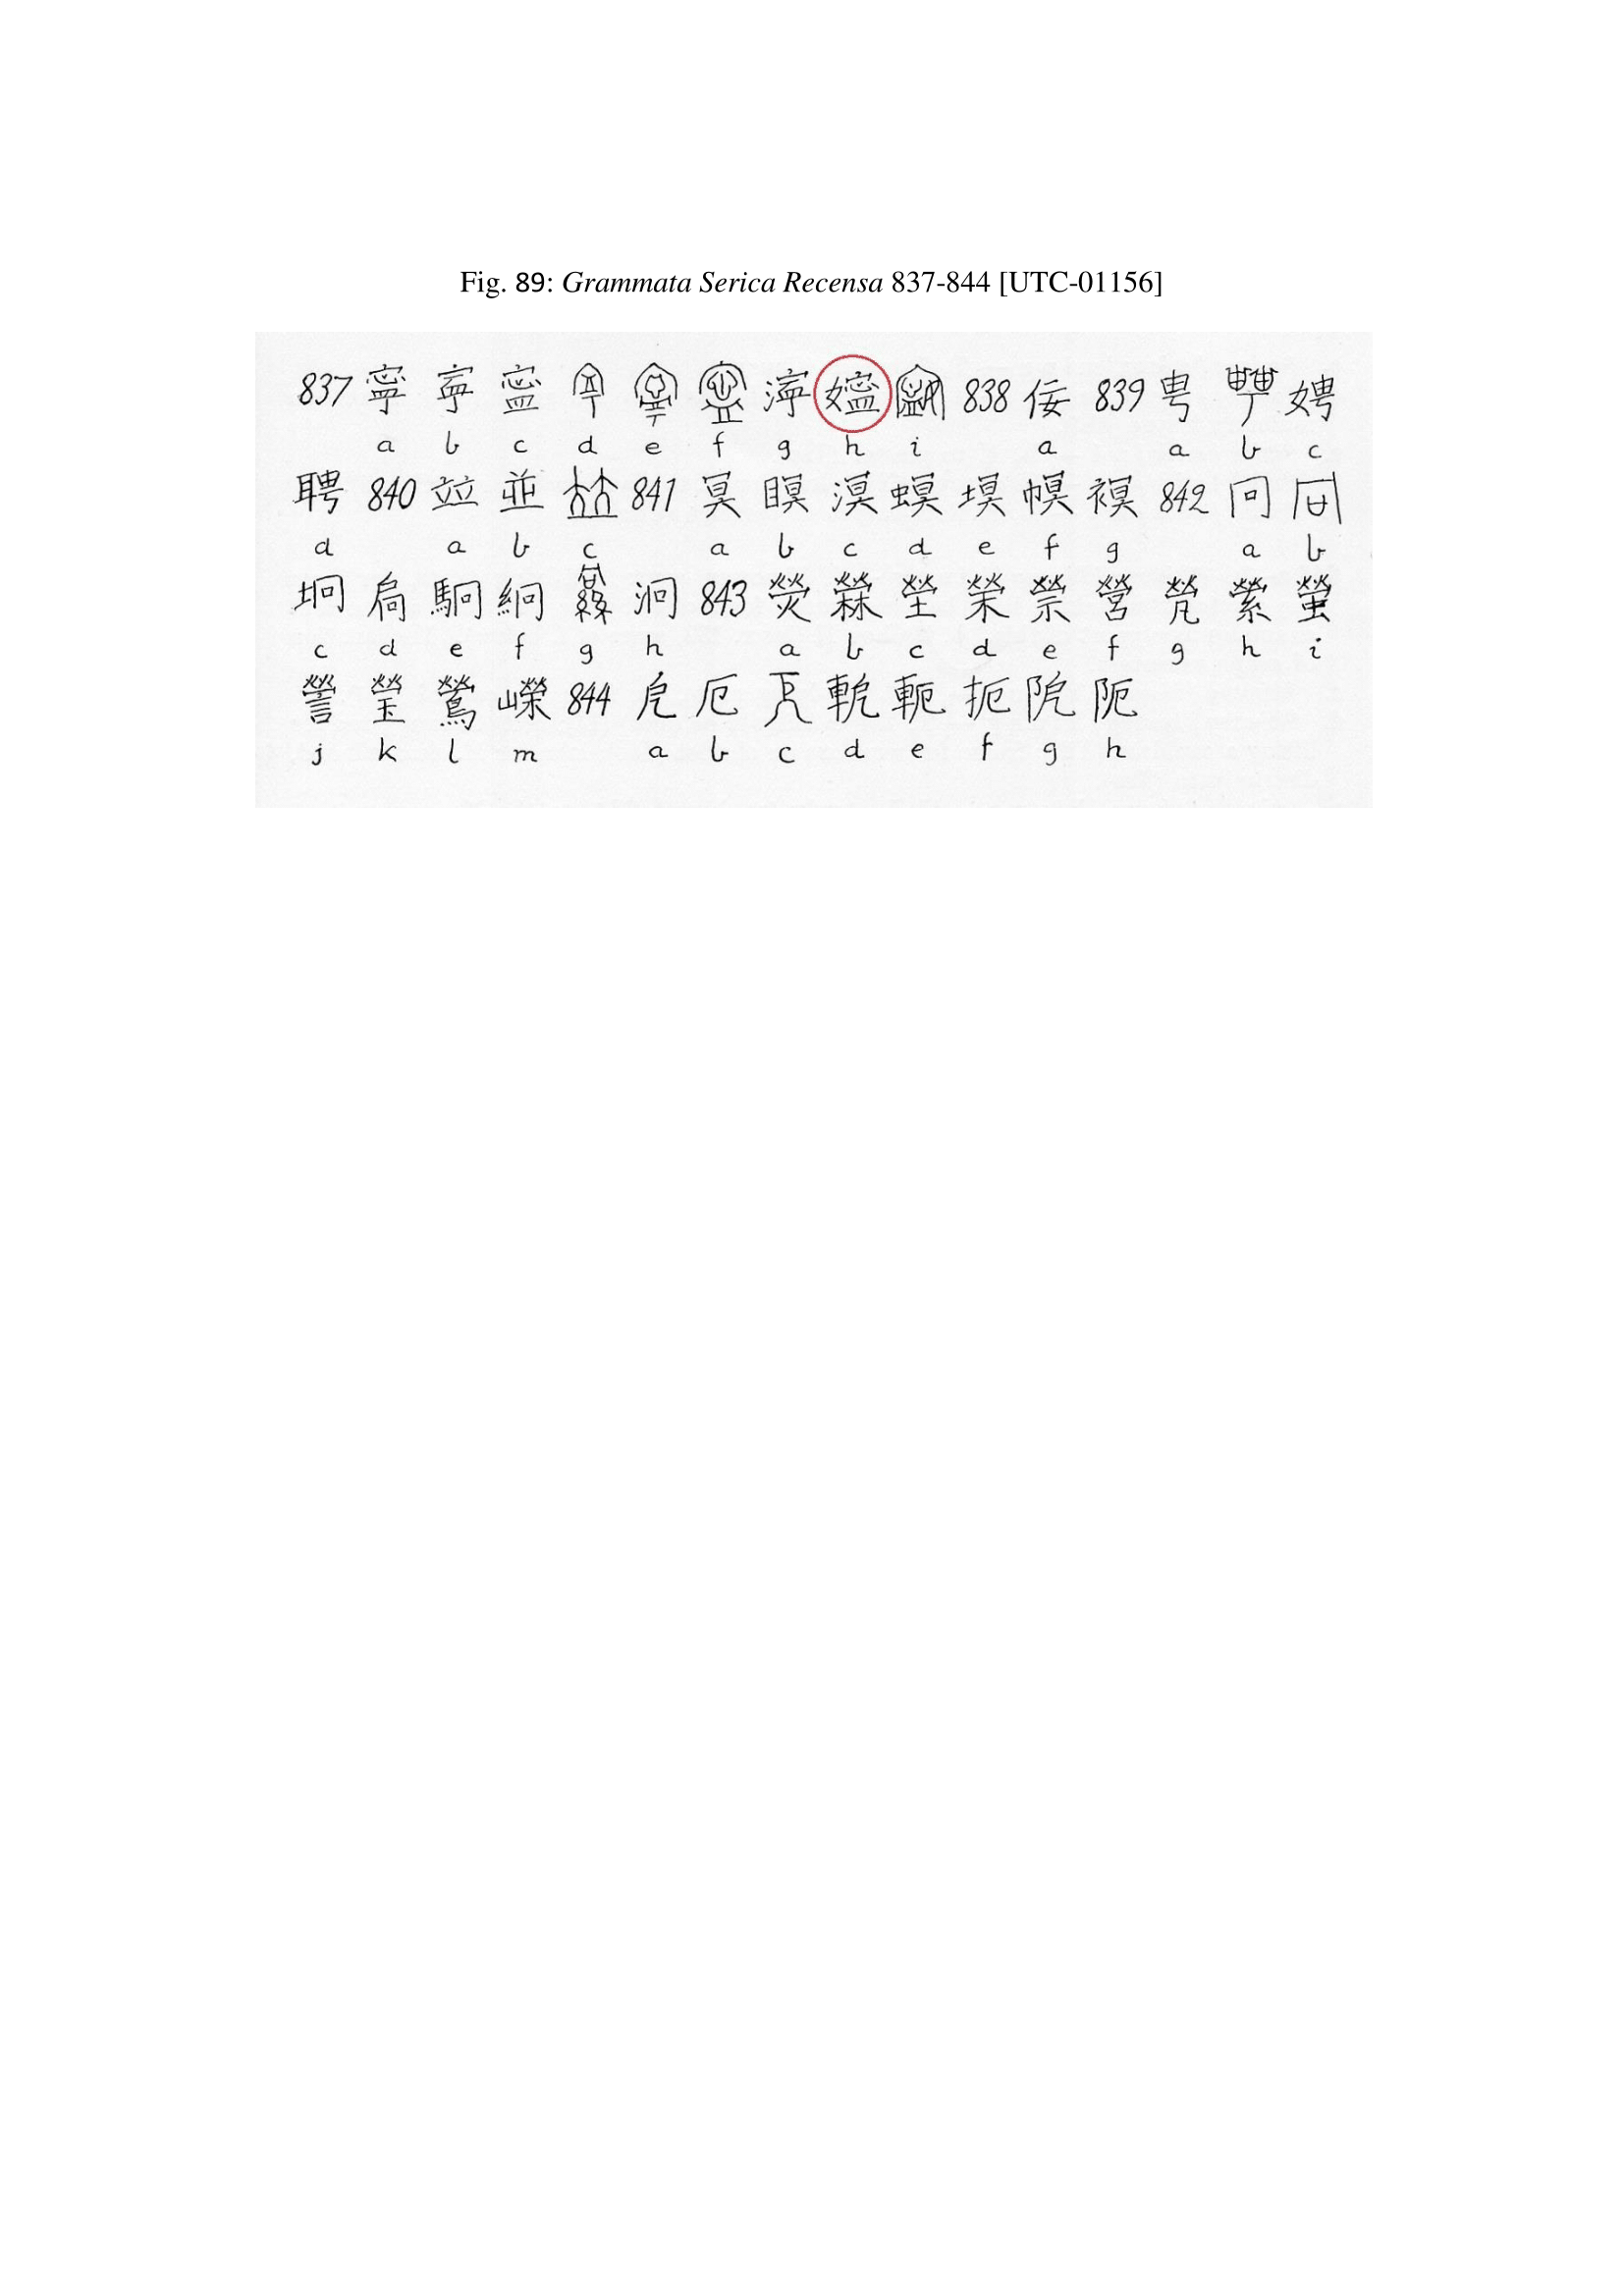 Fig. 89: Grammata Serica Recensa 837-844 [UTC-01156]
837 寧 寍 寜 瀞 838 佞 839 甹 娉
a b c d e f g h i a a b c
聘 840 竝 並 841 冥 瞑 溟 螟 塓 幎 幎 842 冋
d a b c a b c d e f g a b
坰 扃 駉 絅 泂 843 熒 塋 禜 營 煢 縈 螢
c d e f g h a b c d e f g h i
謍 瑩 鶯 嶸 844 戹 厄 軶 軛 扼 阨
j k l m a b c d e f g h